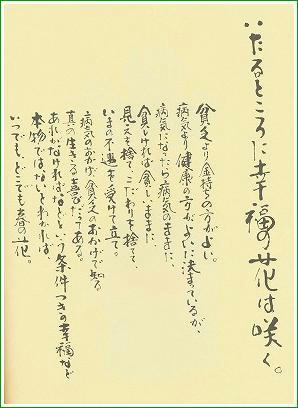 いたるところに幸福の花は咲く。
貧乏より金持ちの方がよい。
病気より健康の方がよいに決まっているが、
病気になったら病気のままに、
貧しければ貧しいままに、
見えを捨て、こだわりを捨て、
いまの不遇を受けて立て。
病気のおかげ、貧乏のおかげで知る
真の生きる喜びだってある。
あれがなければなどという条件つきの幸福など
本物ではないとわかれば、
いつでも、どこでも春の花。